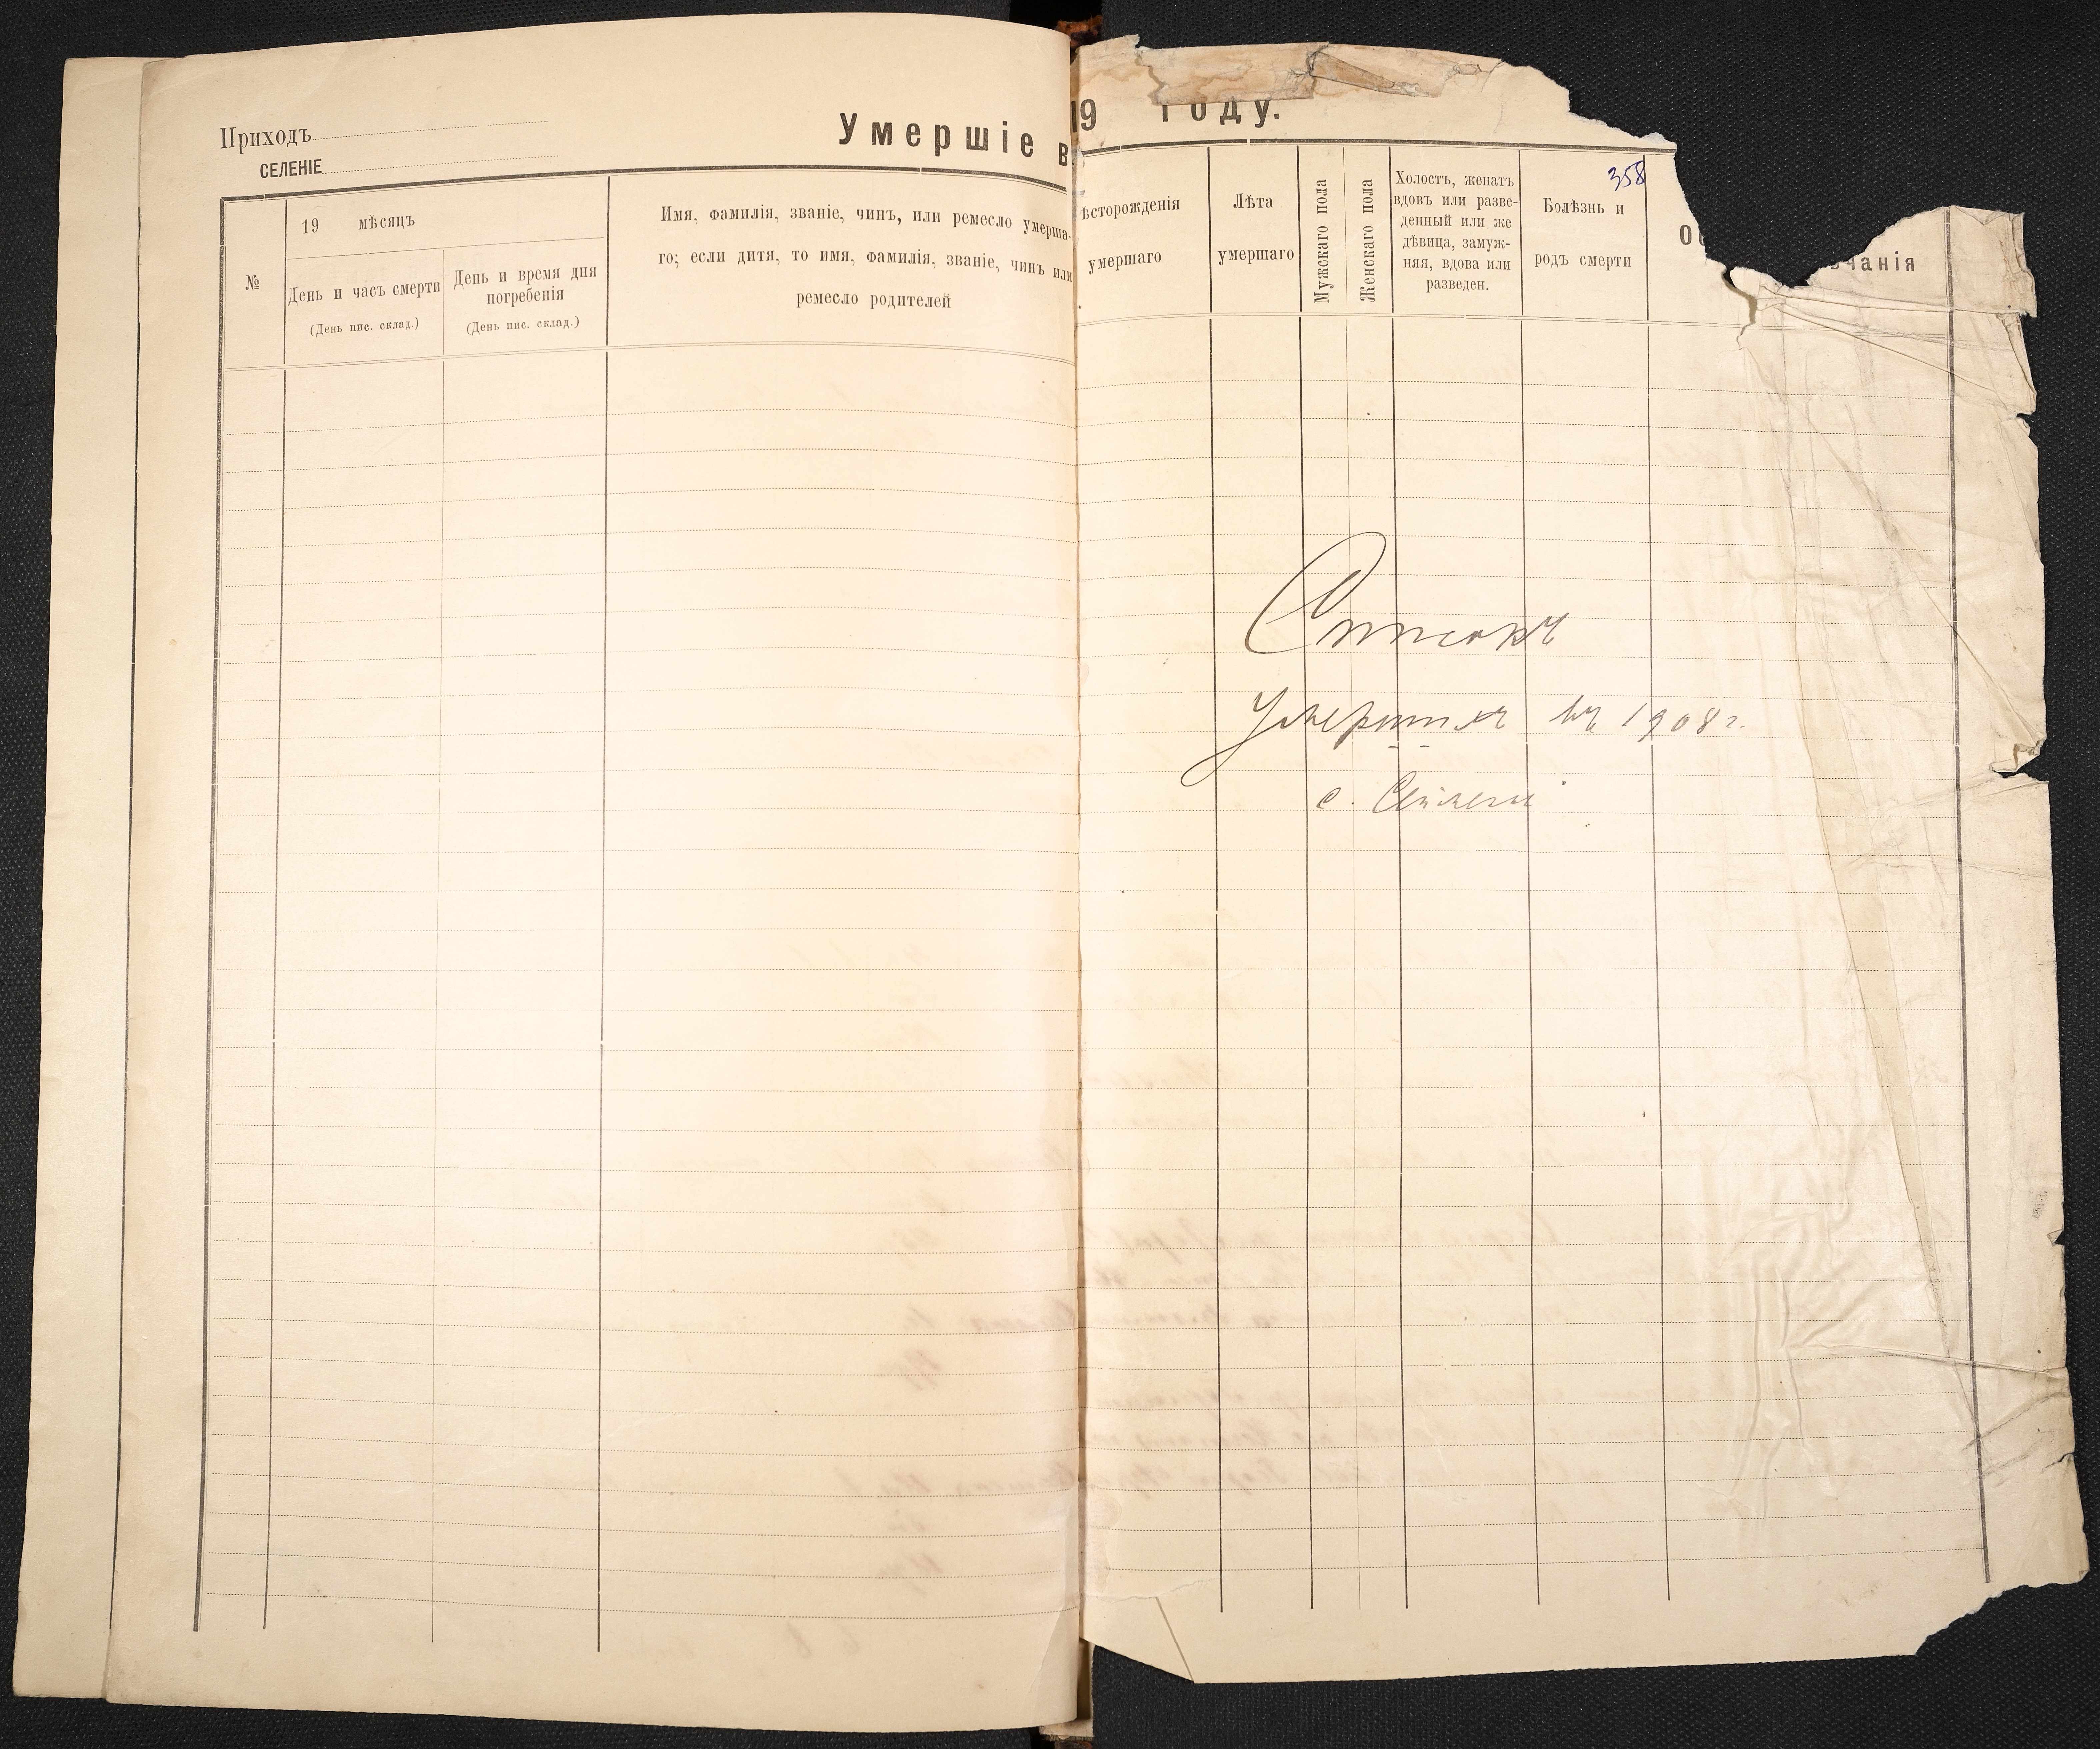 Приходъ
СЕЛЕНІЕ
Умершіе в
19 году.
358
№
19 мѣсяцъ
День и часъ смерти
(День пис. склад.)
День и время дня
погребенія
(День пис. склад.)
Имя, фамилія, званіе, чинъ, или ремесло умерша-
го; если дитя, то имя, фамилія, званіе, чинъ или
ремесло родителей
ѣсторожденія
умершаго
Лѣта
умершаго
Мужскаго пола
Женскаго пола
Холостъ, женатъ
вдовъ или разве-
денный или же
дѣвица, замуж-
няя, вдова или
разведен.
Болѣзнь и
родъ смерти
чанія
Списокъ
Умершихъ въ 1908 г.
с.